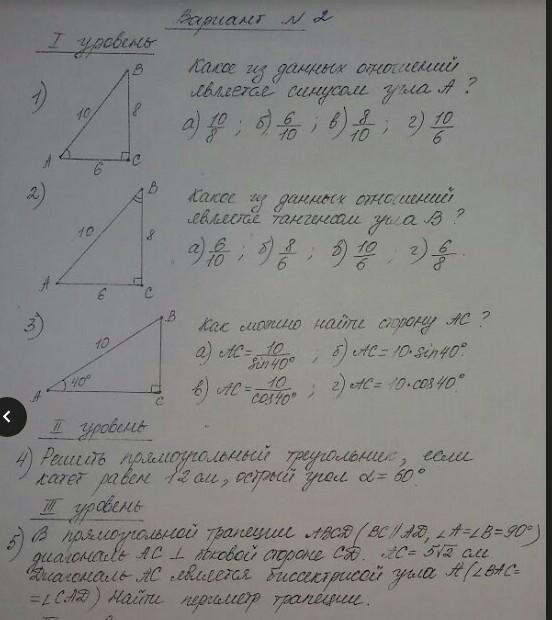 Вариант N 2
I уровень
1)
Какое из данных отношений
является синусом угла А ?
а) 10/8 ; б) 6/10 ; в) 8/10 ; г) 10/6
B
10
8
A
6
C
2)
Какое из данных отношений
является тангенсом угла В ?
а) 6/10 ; б) 8/6 ; в) 10/6 ; г) 6/8.
B
10
8
A
6
C
3)
Как можно найти сторону АС ?
а) АС = 10/sin40° ; б) АС = 10·sin40°.
в) АС = 10/cos40° ; г) АС = 10·cos40°.
B
10
A
40°
C
II уровень
4) Решить прямоугольный треугольник, если
катет равен 12 см, острый угол α = 60°
III уровень
5) В прямоугольной трапеции ABCD (BC∥AD, ∠A=∠B=90°)
диагональ AC ⊥ боковой стороне CD. AC = 5√2 см.
Диагональ AC является биссектрисой угла А (∠BAC=
=∠CAD) Найти периметр трапеции.